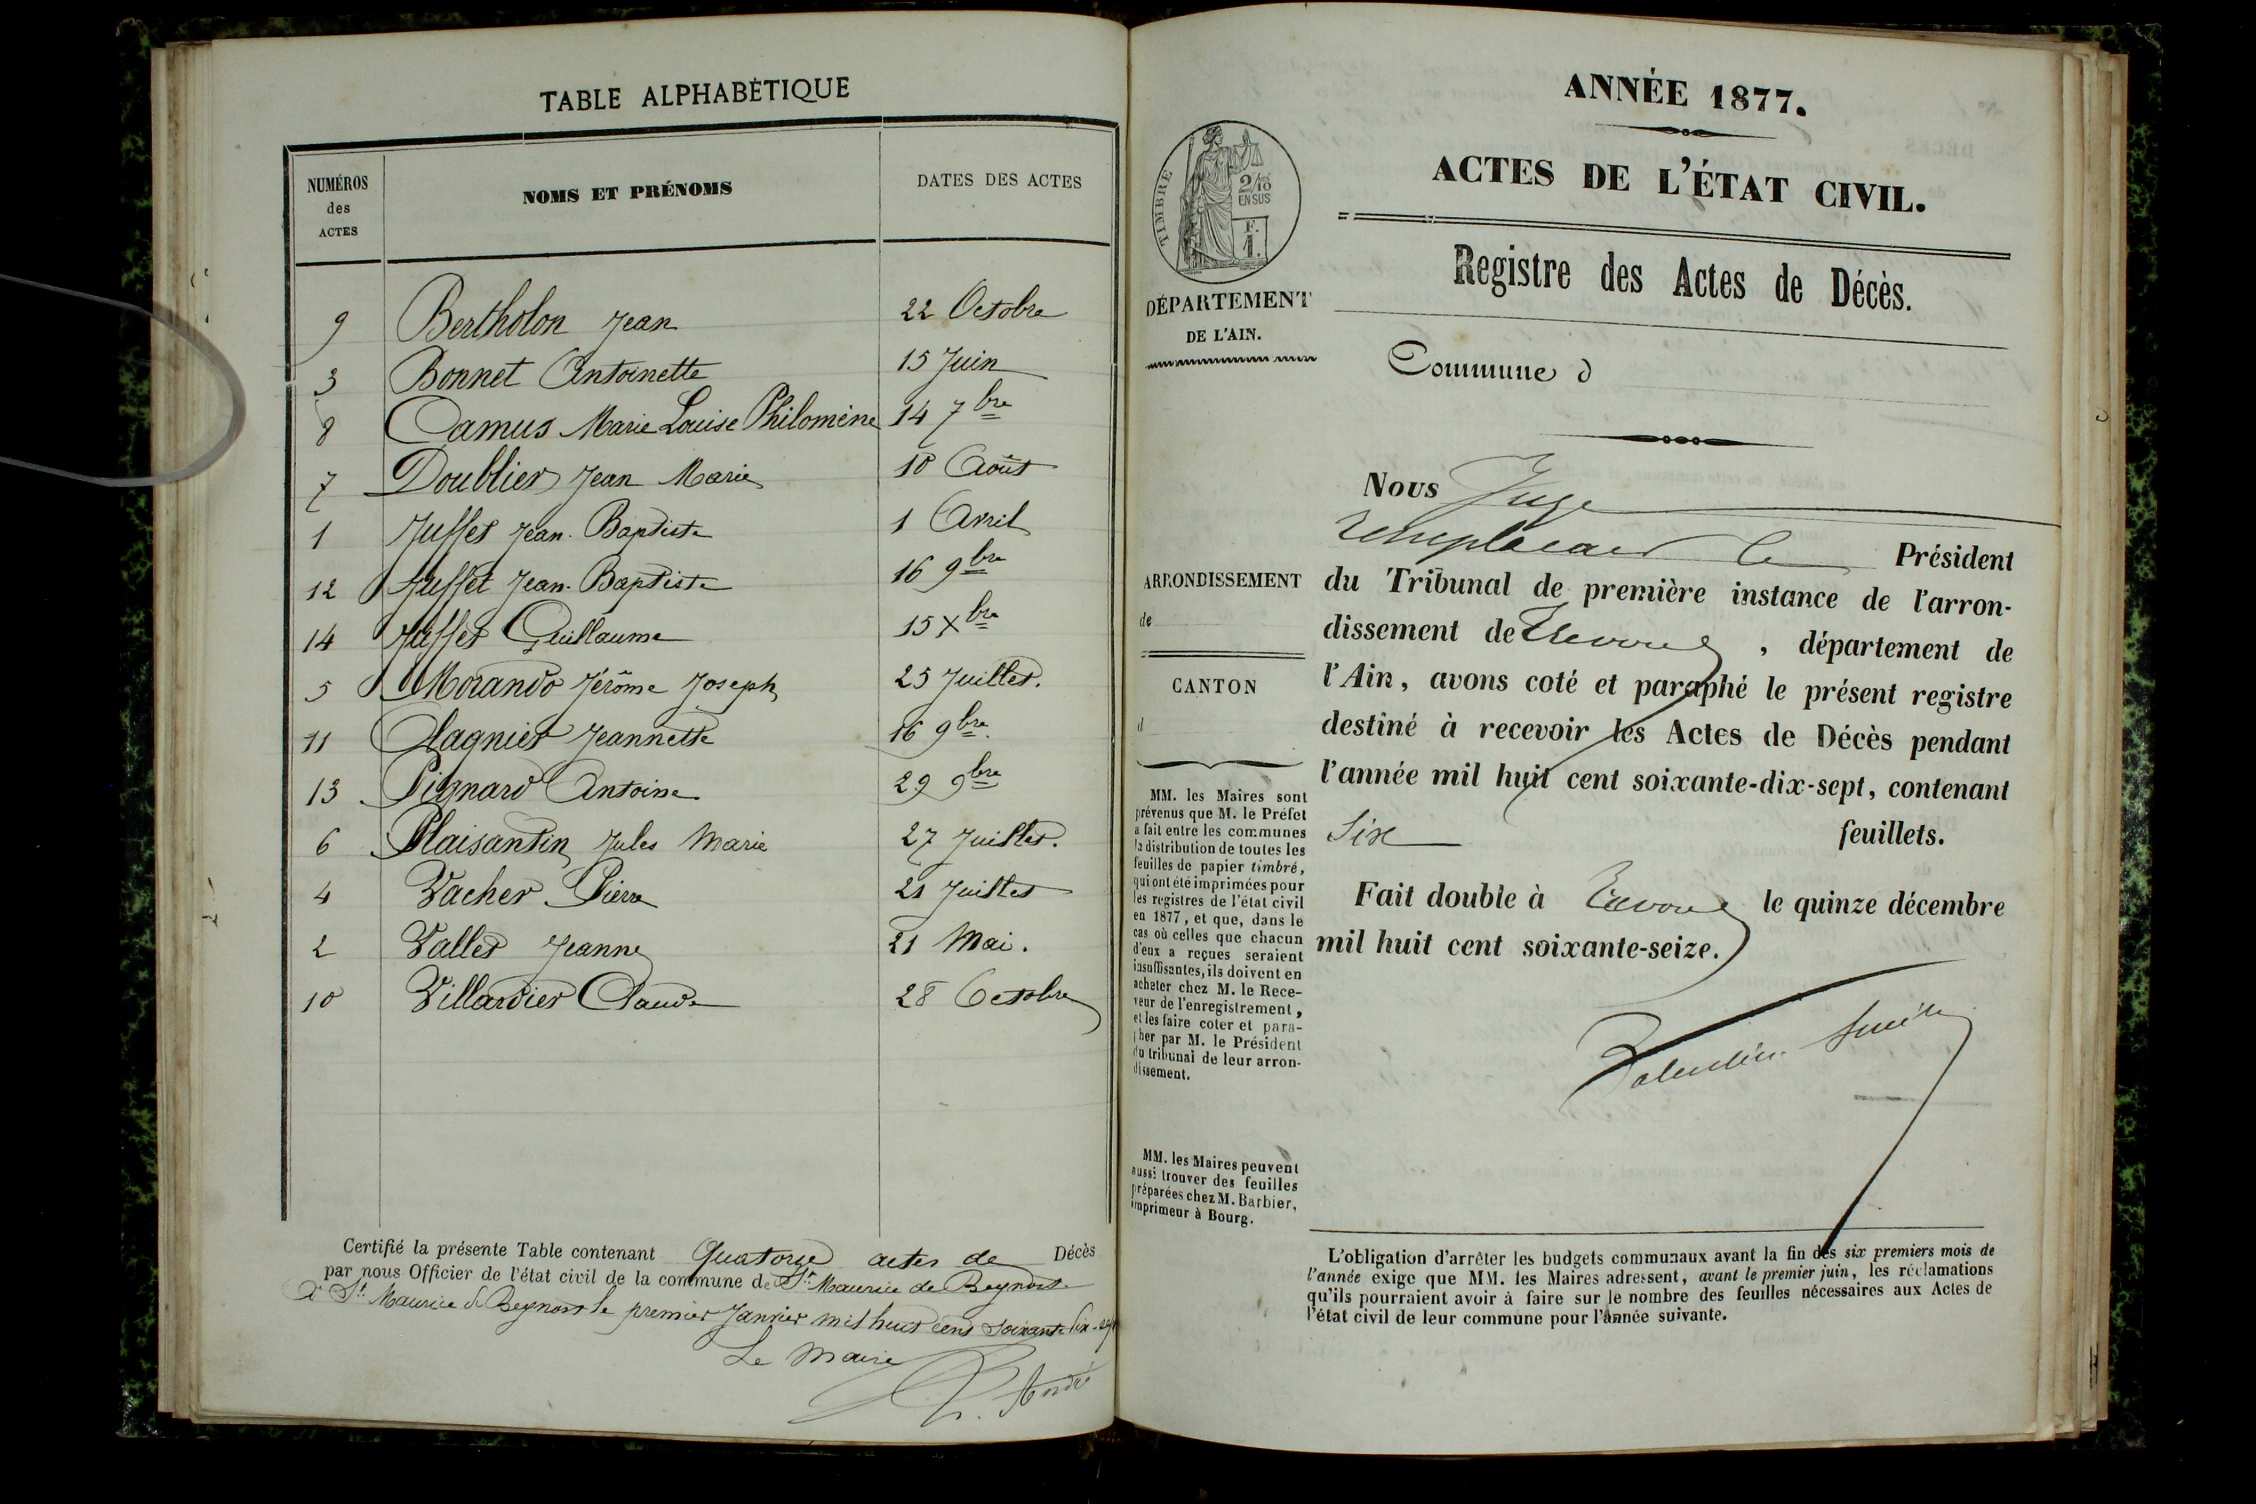 TABLE ALPHABÉTIQUE
NUMÉROS des ACTES NOMS ET PRÉNOMS DATES DES ACTES
9 Bertholon Jean 22 Octobre
3 Bonnet Antoinette 15 Juin
8 Camus Marie Louise Philomène 14 7bre
7 Doublier Jean Marie 10 Août
1 Juffet Jean-Baptiste 1 Avril
12 Juffet Jean-Baptiste 16 9bre
14 Juffet Guillaume 15 Xbre
5 Morando Jérôme Joseph 25 Juillet.
11 Jeannette 16 9bre.
13 Pignard Antoine 29 9bre
6 Plaisantin Jules Marie 27 Juillet.
4 Vacher Pierre 21 Juillet
2 Vallet Jeanne 21 Mai.
10 Villardier Claude 28 Octobre
Certifié la présente Table contenant Quatorze actes de Décès
par nous Officier de l'état civil de la commune de St Maurice de Beynost
à St Maurice de Beynost le premier Janvier mil huit cent soixante dix-sept
Le Maire
André
ANNÉE 1877.
ACTES DE L'ÉTAT CIVIL.
Registre des Actes de Décès.
TIMBRE
2/10
EN SUS
F.
1.
DÉPARTEMENT
DE L'AIN.
Commune d
Nous Juge
remplacant le Président
du Tribunal de première instance de l'arron-
dissement de Trevoux, département de
l'Ain, avons coté et paraphé le présent registre
destiné à recevoir les Actes de Décès pendant
l'année mil huit cent soixante-dix-sept, contenant
Six feuillets.
Fait double à Trevoux le quinze décembre
mil huit cent soixante-seize.
Valentin
ARRONDISSEMENT
de
CANTON
d
MM. les Maires sont
prévenus que M. le Préfet
a fait entre les communes
la distribution de toutes les
feuilles de papier timbré,
qui ont été imprimées pour
les registres de l'état civil
en 1877, et que, dans le
cas où celles que chacun
d'eux a reçues seraient
insuffisantes, ils doivent en
acheter chez M. le Rece-
veur de l'enregistrement,
et les faire coter et para-
pher par M. le Président
du tribunal de leur arron-
dissement.
MM. les Maires peuvent
aussi trouver des feuilles
préparées chez M. Barbier,
imprimeur à Bourg.
L'obligation d'arrêter les budgets communaux avant la fin des six premiers mois de
l'année exige que MM. les Maires adressent, avant le premier juin, les réclamations
qu'ils pourraient avoir à faire sur le nombre des feuilles nécessaires aux Actes de
l'état civil de leur commune pour l'année suivante.